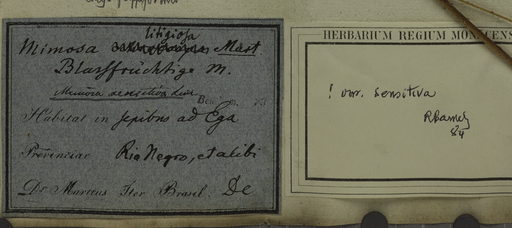 litigiosa
Mimosa Mart
Blassfrüchtige M.
Mimosa sensitiva Linn
Habitat in sepibus ad Ega
Provinciae Rio Negro, et alibi
Dr. Martius Iter Brasil. De
HERBARIUM REGIUM MONACENS
! var. sensitiva
RBarneby
84